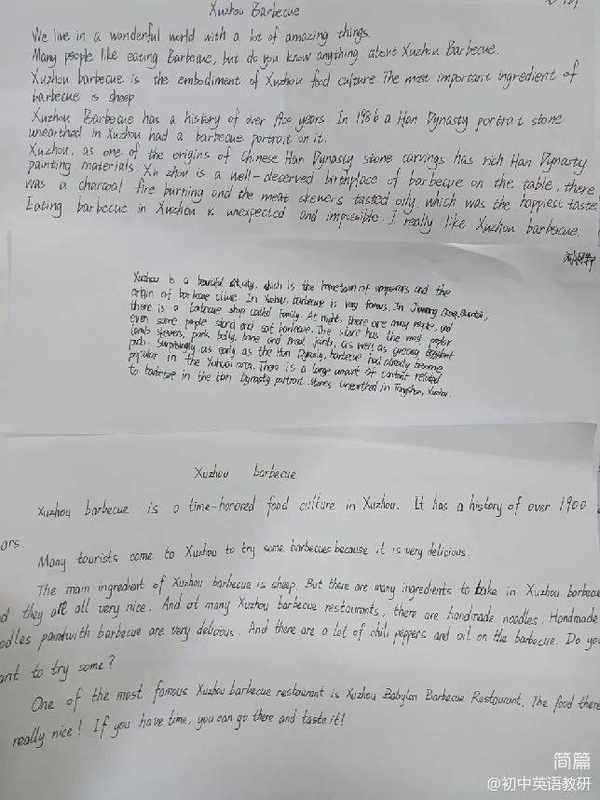 Xuzhou Barbecue
We live in a wonderful world with a lot of amazing things.
Many people like eating Barbecue, but do you know anything about Xuzhou Barbecue.
Xuzhou barbecue is the embodiment of Xuzhou food culture The most important ingredient of
barbecue is sheep
Xuzhou Barbecue has a history of over years In 1986 a Han Dynasty portrait stone
unearthed in Xuzhou had a barbecue portrait on it.
Xuzhou, as one of the origins of Chinese Han Dynasty stone carvings has rich Han Dynasty
painting materials Xu zhou is a well-deserved birthplace of barbecue on the table, there
was a charcoal fire burning and the meat skewers tasted oily, which was the happiest taste
Eating barbecue in Xuzhou is unexpected and impossible. I really like Xuzhou barbecue.
Xuzhou is a beautiful city, which is the hometown of emperors and the
origin of barbecue culture. In Xuzhou, barbecue is very famous. In
there is a barbecue shop called Family. At night, there are many people, and
even some people stand and eat barbecue. The store has the most popular
lamb skewers, pork belly, bone and meat joints, as well as
Surprisingly, as early as the Han Dynasty, barbecue had already become
popular in the Xuzhou area. There is a large amount of content related
to barbecue in the Han Dynasty portrait stones unearthed in Tongshan, Xuzhou.
Xuzhou barbecue
Xuzhou barbecue is a time-honored food culture in Xuzhou. It has a history of over 1900
ars.
Many tourists come to Xuzhou to try some barbecues because it is very delicious.
The main ingredient of Xuzhou barbecue is sheep. But there are many ingredients to bake in Xuzhou barbecue
d they are all very nice. And at many Xuzhou barbecue restaurants, there are handmade noodles. Handmade
oodles with barbecue are very delicious. And there are a lot of chili peppers and oil on the barbecue. Do you
ant to try some?
One of the most famous Xuzhou barbecue restaurant is Xuzhou Babylon Barbecue Restaurant. The food there
really nice! If you have time, you can go there and taste it!
简篇
@初中英语教研